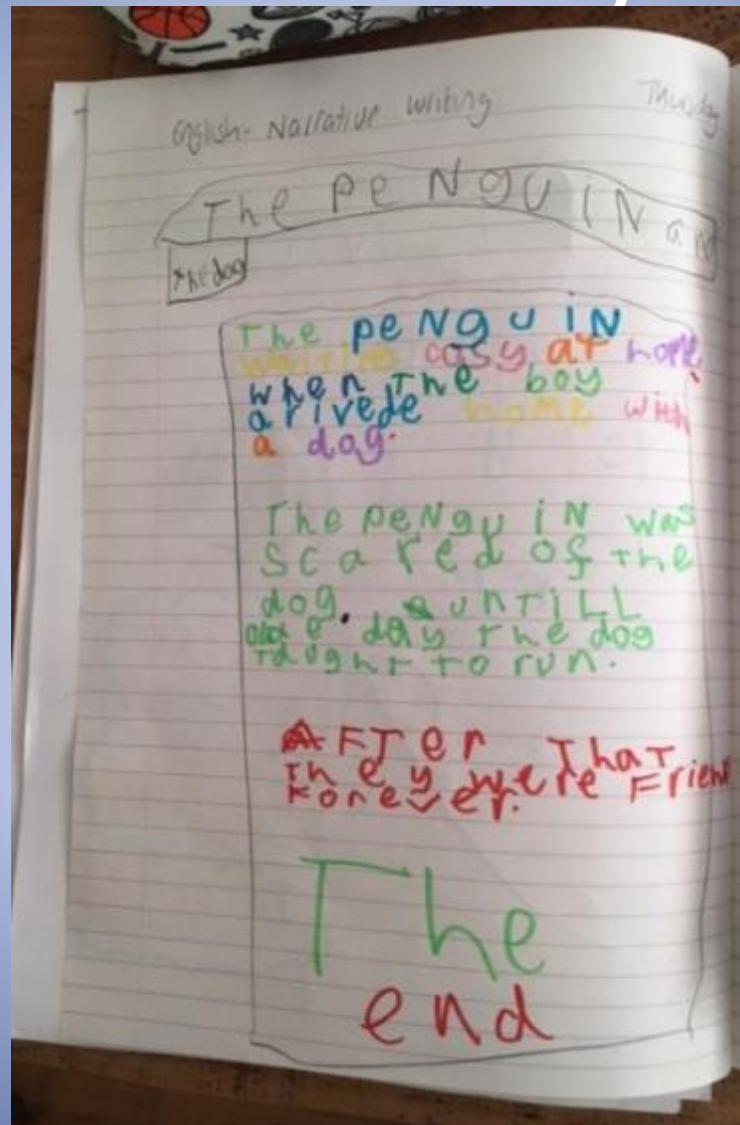 English- Narrative writing Thursday
The PeNguiN and
the dog
The peNguiN
cosy at home
when The boy
arivede home with
a dog.
The peNguiN was
scared of the
dog. unTiLL
one day The dog
Taught to run.
AFTer ThaT
They were Friend
Forever.
The
end